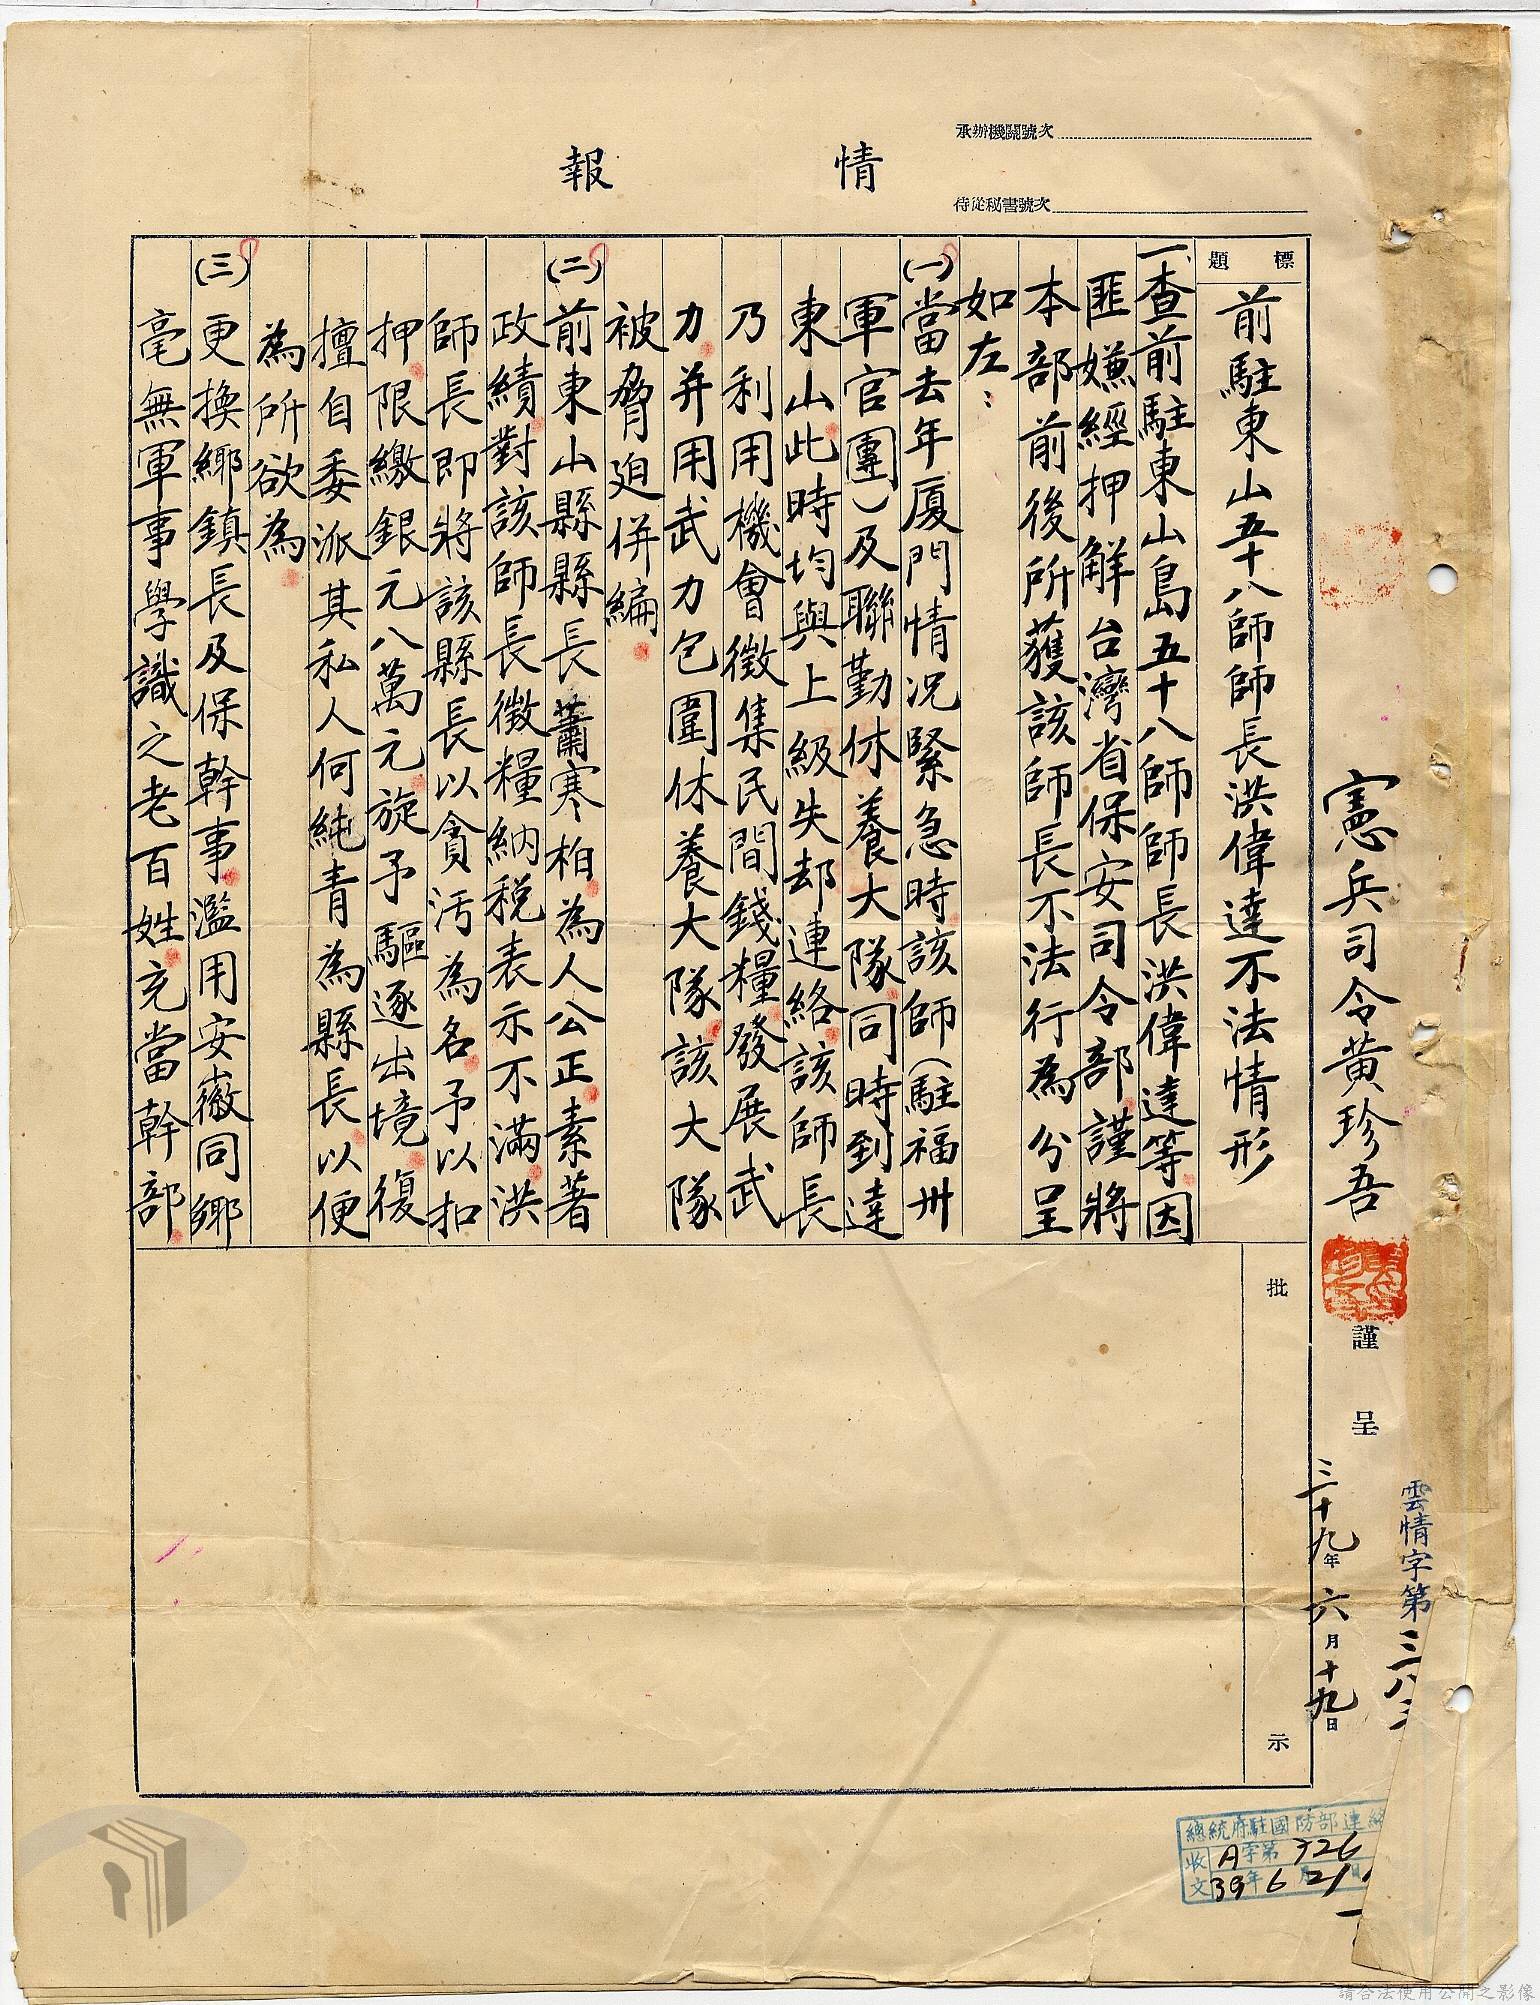 承辦機關號次
侍從秘書號次
情報
憲兵司令黃珍吾
謹呈
三十九年六月十九日
雲情字第三八三
標題
前駐東山五十八師師長洪偉達不法情形
一、查前駐東山島五十八師師長洪偉達等因
匪嫌經押解台灣省保安司令部謹將
本部前後所獲該師長不法行為分呈
如左：
(一)當去年廈門情況緊急時該師(駐福州
軍官團)及聯勤休養大隊同時到達
東山此時均與上級失却連絡該師長
乃利用機會徵集民間錢糧發展武
力并用武力包圍休養大隊該大隊
被脅廹併編
(二)前東山縣縣長蕭寒柏為人公正素著
政績對該師長徵糧納稅表示不滿洪
師長即將該縣長以貪汚為名予以扣
押限繳銀元八萬元旋予驅逐出境復
擅自委派其私人何純青為縣長以便
為所欲為
(三)更換鄉鎮長及保幹事濫用安徽同鄉
毫無軍事學識之老百姓充當幹部
批示
總統府駐國防部連絡
收文
A字第326
39年6月21日
請合法使用公開之影像